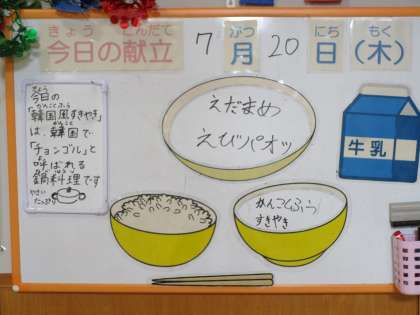 きょう こんだて
今日の献立
7 月 20 日 (木)
がつ にち もく
きょう
今日の
かんこくふう
「韓国風すきやき」
かんこく
は、韓国で
「チョンゴル」と
よ
呼ばれる
なべりょうり
鍋料理です
やさい
たっぷり
えだまめ
えびパオッ
牛乳
かんこくふう
すきやき